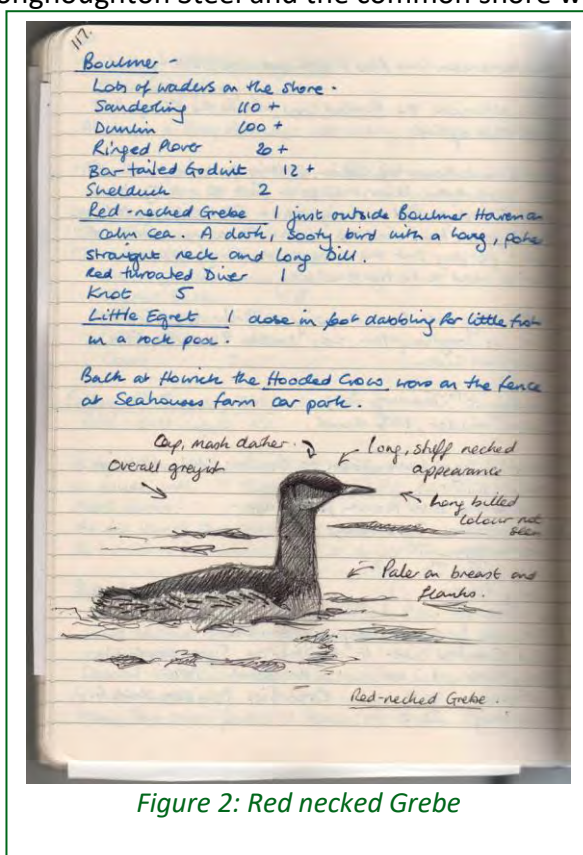 117.
Boulmer -
Lots of waders on the shore.
Sanderling 110 +
Dunlin 100 +
Ringed Plover 20 +
Bar-tailed Godwit 12 +
Shelduck 2
Red-necked Grebe 1 just outside Boulmer Haven on
calm sea. A dark, sooty bird with a long,
straight neck and long bill.
Red throated Diver 1
Knot 5
Little Egret 1 close in foot dabbling for little fish
in a rock pool.
Back at Howick the Hooded Crow was on the fence
at Seahouses farm car park.
Cap, mask darker.
long, stiff necked
appearance
Overall greyish
Long billed
colour not
seen
Paler on breast and
flanks.
Red-necked Grebe.
Figure 2: Red necked Grebe